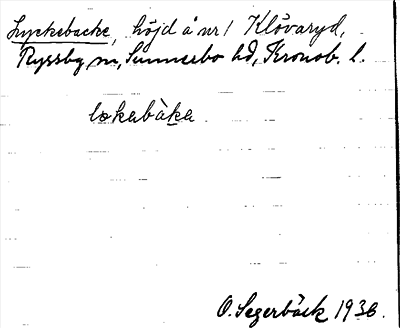 Lyckebacke, höjd å nr 1 Klövaryd,
Ryssby sn, Sunnerbo hd, Kronob. l.
lokabàka
O. Segerbäck 1936.